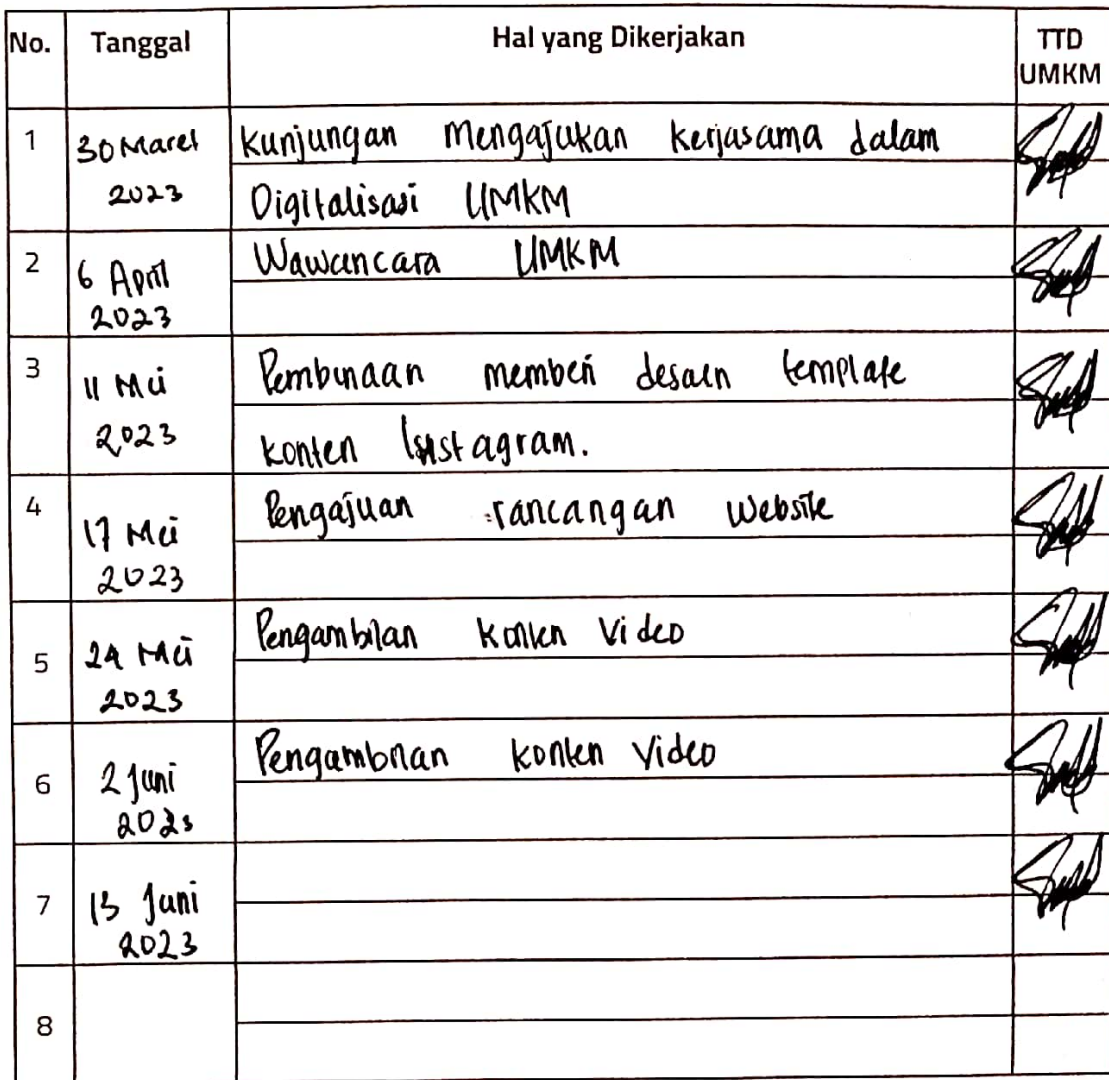 No. Tanggal Hal yang Dikerjakan TTD
UMKM
1 30 Maret Kunjungan Mengajukan kerjasama dalam
2023 Digitalisasi UMKM
2 6 April Wawancara UMKM
2023
3 11 Mei Pembinaan memberi desain template
2023 konten Instagram.
4 17 Mei Pengajuan rancangan Website
2023
5 24 Mei Pengambilan Konten Video
2023
6 2 Juni Pengambilan Konten Video
2023
7 13 Juni
2023
8